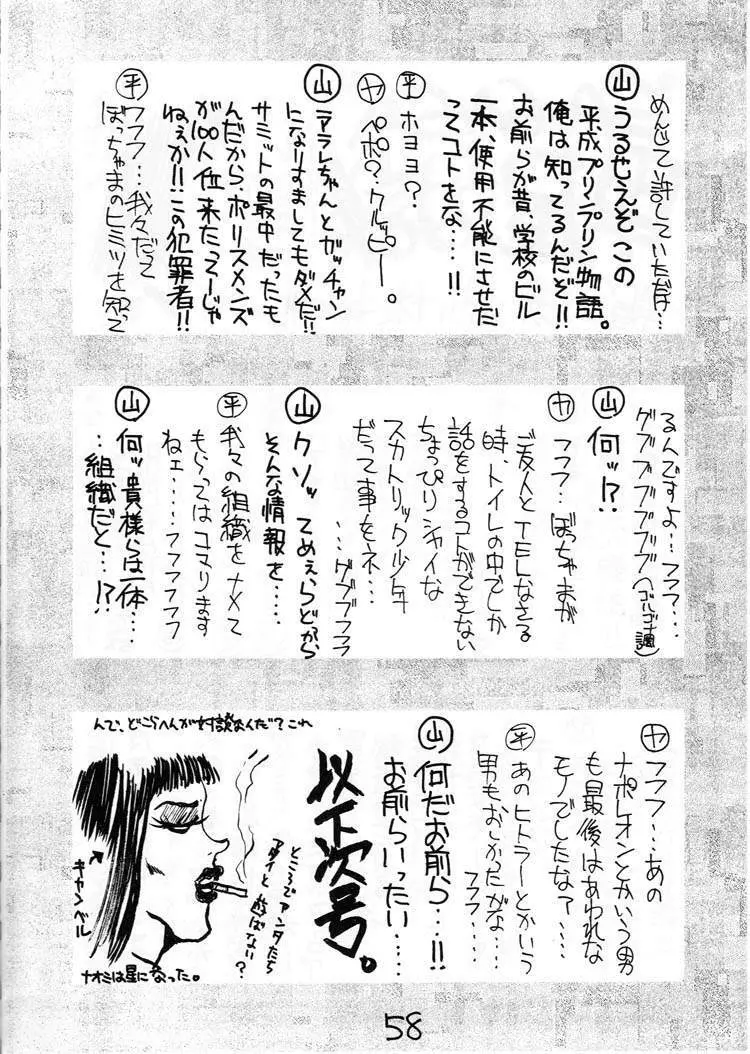 めんじて許していただけ…
山 うるせえぞこの
平成プリンプリン物語。
俺は知ってるんだぞ!!
お前らが昔、学校のビル
一本、使用不能にさせた
ってコトをな…!!
平 ホヨヨ?
ヤ ペポ?クルッピー。
山 アラレちゃんとガッチャン
になりすましてもダメだ!!
サミットの最中だったも
んだから、ポリスメンズ
が100人位来たってーじゃ
ねぇか!!この犯罪者!!
平 ウフフ…我々だって
ぼっちゃまのヒミツを知って
るんですよ…フフフ…
グブブブブブブ(ゴルゴナ調)
山 何ッ!?
ヤ フフフ…ぼっちゃまが
ご友人とTELしなさる
時、トイレの中でしか
話をするコトができない
ちょっぴりシャイな
スカトリック少年
だって事をネ…
…グブブフフフ
山 クソッてめぇらどから
そんな情報を…
平 我々の組織をナメて
もらってはコマります
ねェ…フフフフフ
山 何ッ貴様らは一体…
…組織だと…!?
ヤ フフフ…あの
ナポレオンとかいう男
も最後はあわれな
モノでしたなァ…
平 あのヒトラーとかいう
男もおしかったがな…
フフフ…
山 何だお前ら…!!
お前らいったい…
以下次号。
ところでアンタたち
アタイと遊ばない?
んで、どこらへんが対談なんだ?これ
キャンベル
ナオミは星になった。
58